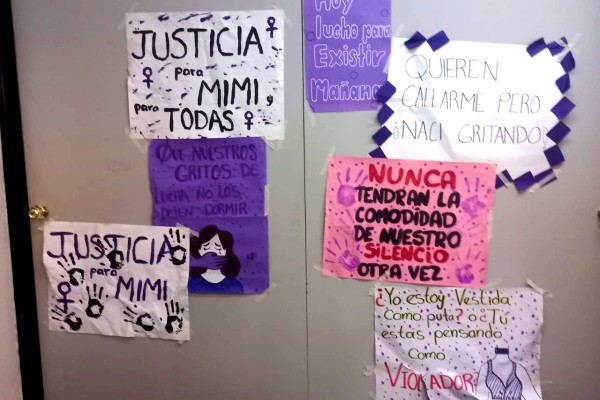 JUSTICIA
para
MIMI,
para
TODAS
Hoy
lucho para
Existir
Mañana
QUIEREN
CALLARME PERO
¡NACI GRITANDO!
QUE NUESTROS
GRITOS DE
LUCHA NO LOS
DEJEN DORMIR
NUNCA
TENDRAN LA
COMODIDAD
DE NUESTRO
SILENCIO
OTRA VEZ
JUSTICIA
para
MIMI
¿Yo estoy Vestida
como puta? o ¿Tú
estas pensando
como
VIOLADOR?